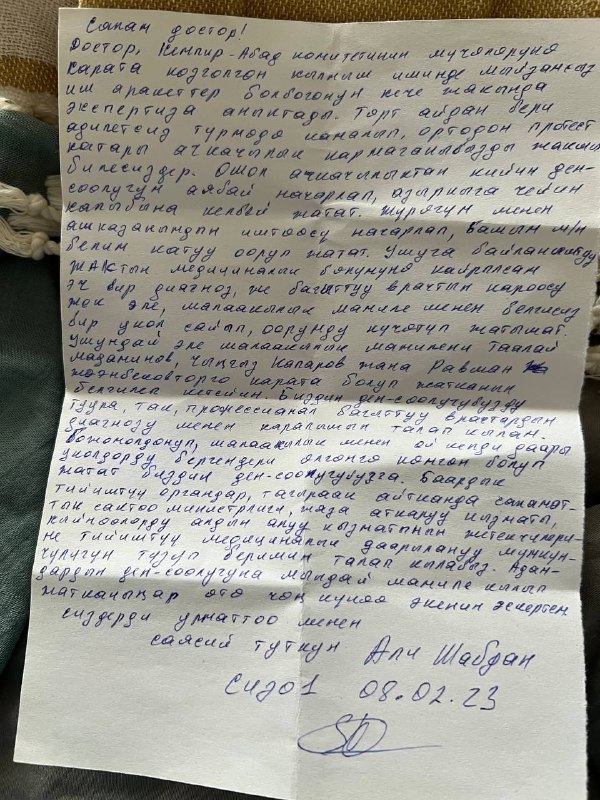 Салам достор!
Достор, Кемпир-Абад комитетинин мүчөлөрүнө
карата козголгон кылмыш ишинде мыйзамсыз
иш аракеттер болбогонун кече жакында
экспертиза аныктады. Төрт айдан бери
адилетсиз түрмөдө камалып, ортодон протест
катары ачкачылык кармаганыбызды жакшы
билесиздер. Ошол ачкачылыктан кийин ден-
соолугум аябай начарлап, азыркыга чейин
калыбына келбей жатат. Жүрөгүм менен
ашказанымдын иштөөсү начарлап, башым м/н
белим катуу ооруп жатат. Ушуга байланыштуу
ЖАКтын медициналык бөлүмүнө кайрылсам
эч бир диагноз, же багыттуу врачтын кароосу
жок эле, шалаакылык мамиле менен белгисиз
бир укол салып, оорумду күчөтүп жатышат.
Ушундай эле шалаакылык мамилени Таалай
Мадаминов, Чыңгыз Капаров жана Равшан
Жээнбековторго карата болуп жатканын
белгилеп кетейин. Биздин ден-соолугубузду
туура, так, профессионал багыттуу врачтардын
диагнозу менен карашышын талап кылам.
Божомолдонуп, шалаакылык менен ой келди дары
уколдорду бергендери өлгөнгө көмгөн болуп
жатат биздин ден-соолугубузга. Баардык
тийиштүү органдар, тагыраак айтканда саламат-
тык сактоо министрлиги, жаза аткаруу кызматы,
кыйноолорду алдын алуу кызматынын жетекчилери-
не тийиштүү медициналык даарылануу мүмкүн-
чүлүгүн түзүп беришин талап кылабыз. Адам-
дардын ден-соолугуна мындай мамиле кылып
жатканыңар өтө чоң күнөө экенин эскертем.
Сиздерди урматтоо менен
саясий туткун Али Шабдан
СИЗО1 08.02.23